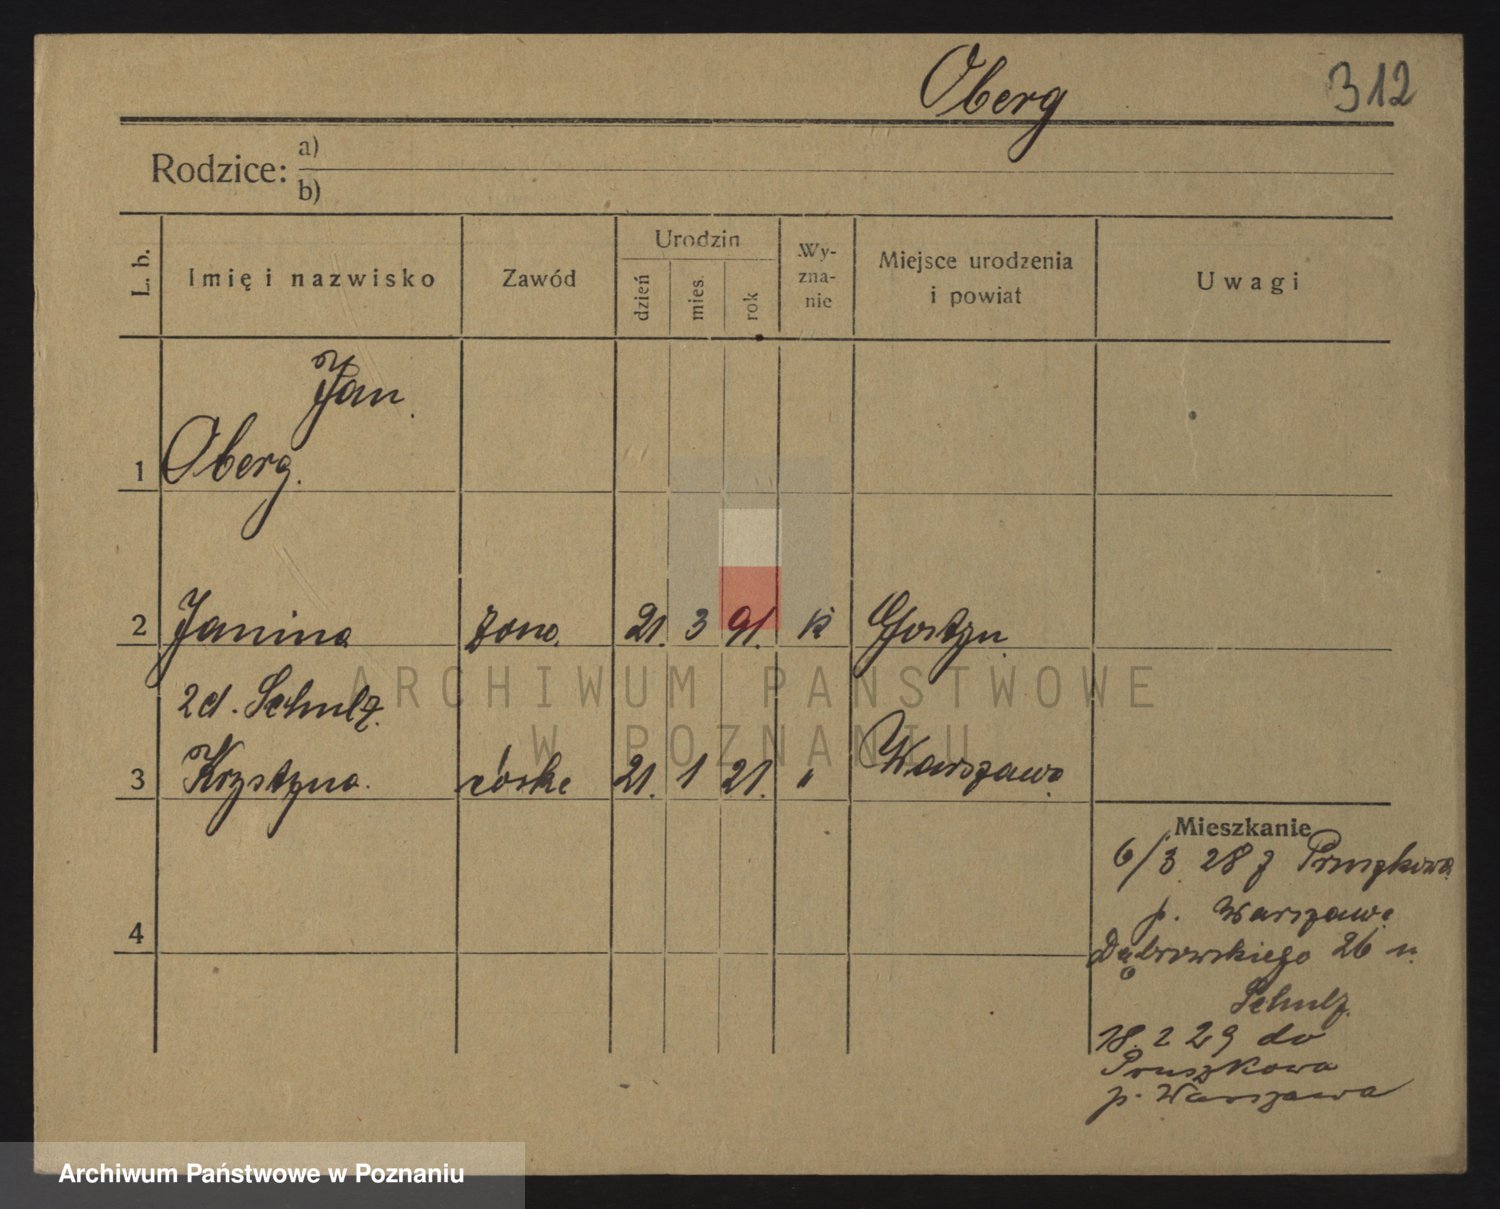 Oberg 312
Rodzice: a)
b)
L. b. Imię i nazwisko Zawód Urodzin dzień mies. rok Wy-zna-nie Miejsce urodzenia i powiat Uwagi
Jan
1 Oberg.
2 Janina żona. 21. 3 91. k Gostyn
zd. Schulz.
3 Krystyna. córka 21. 1 21. " Warszawa
Mieszkanie
6/3 28 z Pruszkowa
p. Warszawą
4
Dąbrowskiego 26 u.
Schulz.
18. 2 29 do
Pruszkowa
p. Warszawa
ARCHIWUM PAŃSTWOWE
W POZNANIU
Archiwum Państwowe w Poznaniu